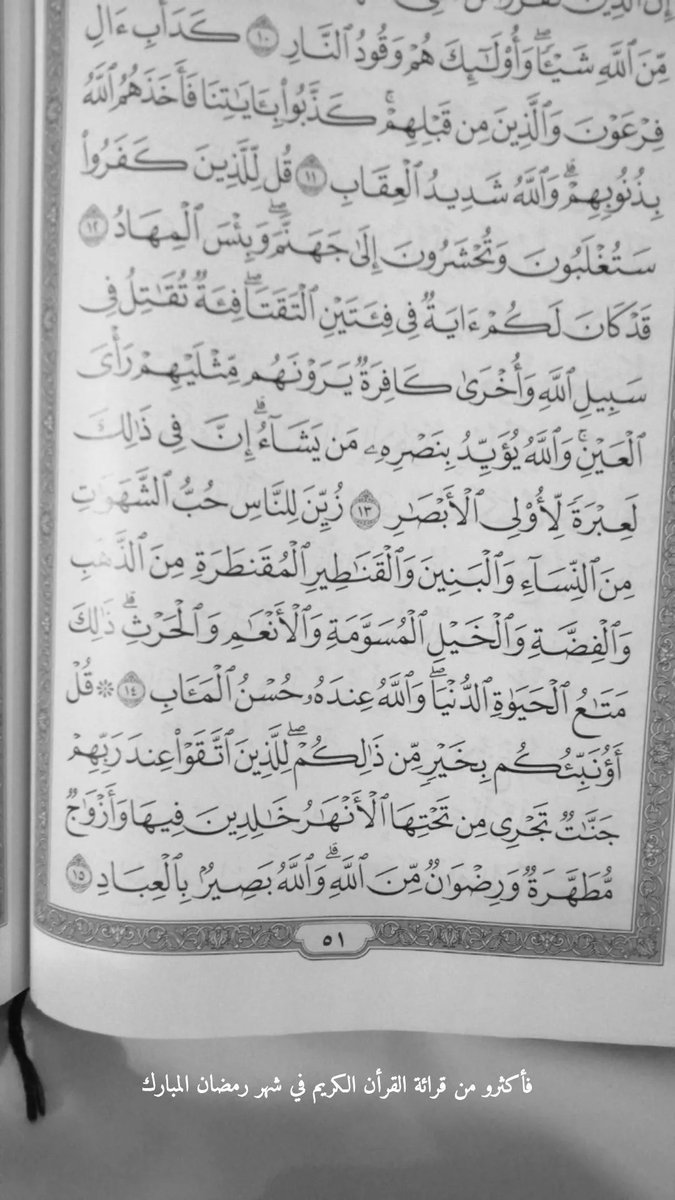 مِّنَ ٱللَّهِ شَيْـًٔا ۖ وَأُو۟لَـٰٓئِكَ هُمْ وَقُودُ ٱلنَّارِ ١٠ كَدَأْبِ ءَالِ
فِرْعَوْنَ وَٱلَّذِينَ مِن قَبْلِهِمْ ۚ كَذَّبُوا۟ بِـَٔايَـٰتِنَا فَأَخَذَهُمُ ٱللَّهُ
بِذُنُوبِهِمْ ۗ وَٱللَّهُ شَدِيدُ ٱلْعِقَابِ ١١ قُل لِّلَّذِينَ كَفَرُوا۟
سَتُغْلَبُونَ وَتُحْشَرُونَ إِلَىٰ جَهَنَّمَ ۚ وَبِئْسَ ٱلْمِهَادُ ١٢
قَدْ كَانَ لَكُمْ ءَايَةٌ فِى فِئَتَيْنِ ٱلْتَقَتَا ۖ فِئَةٌ تُقَـٰتِلُ فِى
سَبِيلِ ٱللَّهِ وَأُخْرَىٰ كَافِرَةٌ يَرَوْنَهُم مِّثْلَيْهِمْ رَأْىَ
ٱلْعَيْنِ ۚ وَٱللَّهُ يُؤَيِّدُ بِنَصْرِهِۦ مَن يَشَآءُ ۗ إِنَّ فِى ذَٰلِكَ
لَعِبْرَةً لِّأُو۟لِى ٱلْأَبْصَـٰرِ ١٣ زُيِّنَ لِلنَّاسِ حُبُّ ٱلشَّهَوَٰتِ
مِنَ ٱلنِّسَآءِ وَٱلْبَنِينَ وَٱلْقَنَـٰطِيرِ ٱلْمُقَنطَرَةِ مِنَ ٱلذَّهَبِ
وَٱلْفِضَّةِ وَٱلْخَيْلِ ٱلْمُسَوَّمَةِ وَٱلْأَنْعَـٰمِ وَٱلْحَرْثِ ۗ ذَٰلِكَ
مَتَـٰعُ ٱلْحَيَوٰةِ ٱلدُّنْيَا ۖ وَٱللَّهُ عِندَهُۥ حُسْنُ ٱلْمَـَٔابِ ١٤ ۞ قُلْ
أَؤُنَبِّئُكُم بِخَيْرٍ مِّن ذَٰلِكُمْ ۖ لِلَّذِينَ ٱتَّقَوْا۟ عِندَ رَبِّهِمْ
جَنَّـٰتٌ تَجْرِى مِن تَحْتِهَا ٱلْأَنْهَـٰرُ خَـٰلِدِينَ فِيهَا وَأَزْوَٰجٌ
مُّطَهَّرَةٌ وَرِضْوَٰنٌ مِّنَ ٱللَّهِ ۗ وَٱللَّهُ بَصِيرٌۢ بِٱلْعِبَادِ ١٥
٥١
فأكثرو من قرائة القرأن الكريم في شهر رمضان المبارك